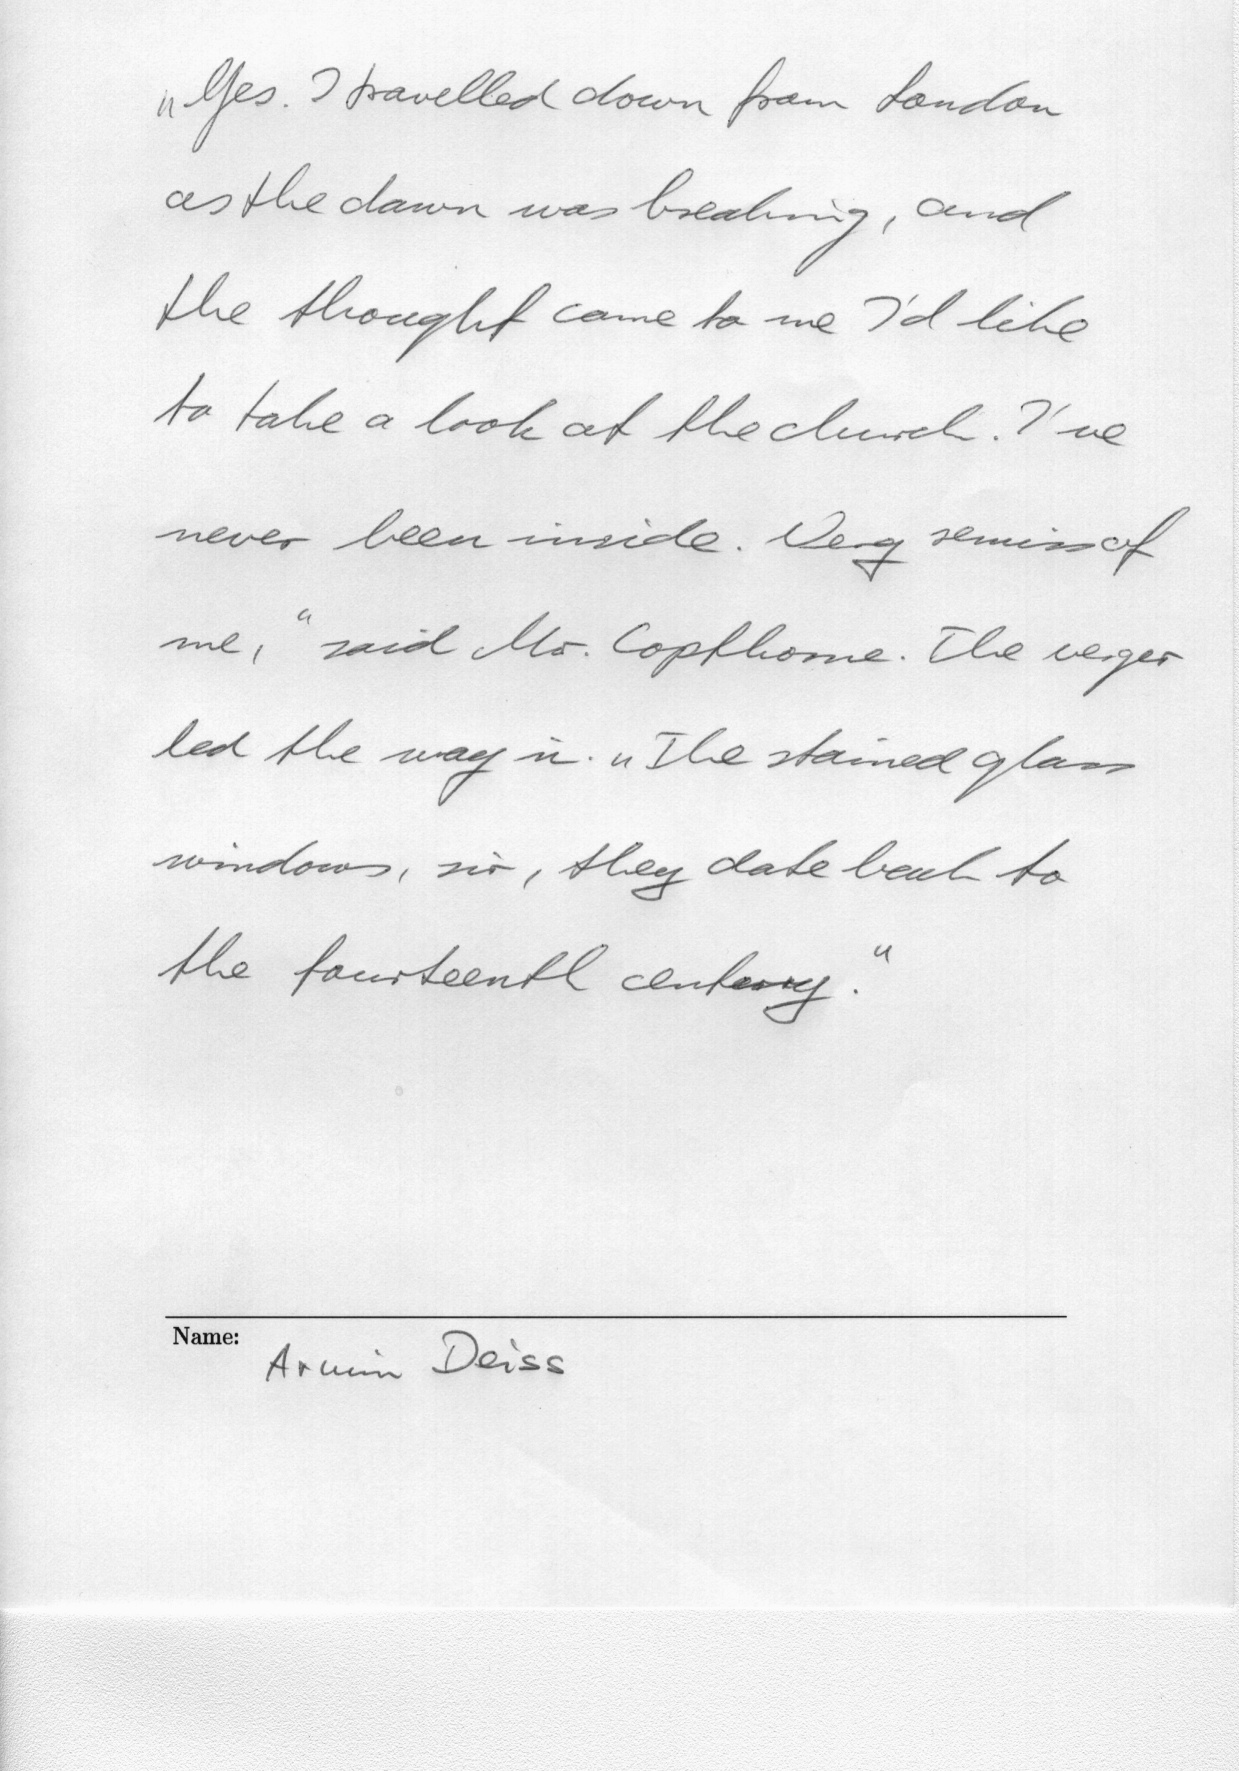 „Yes. I travelled down from London
as the dawn was breaking, and
the thought came to me I'd like
to take a look at the church. I've
never been inside. Very remiss of
me," said Mr. Copthorne. The verger
led the way in. „The stained glass
windows, sir, they date back to
the fourteenth century."
Name:
Armin Deiss